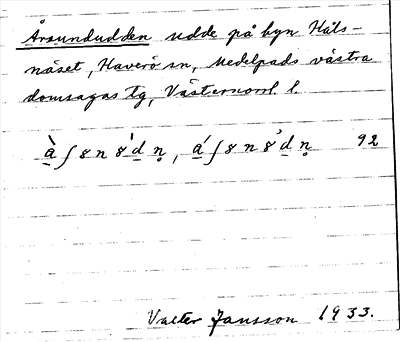 Årsundudden udde på byn Häls-
näset, Haverö sn, Medelpads västra
domsagas tg, Västernorrl. l.
92
Valter Jansson 1933.